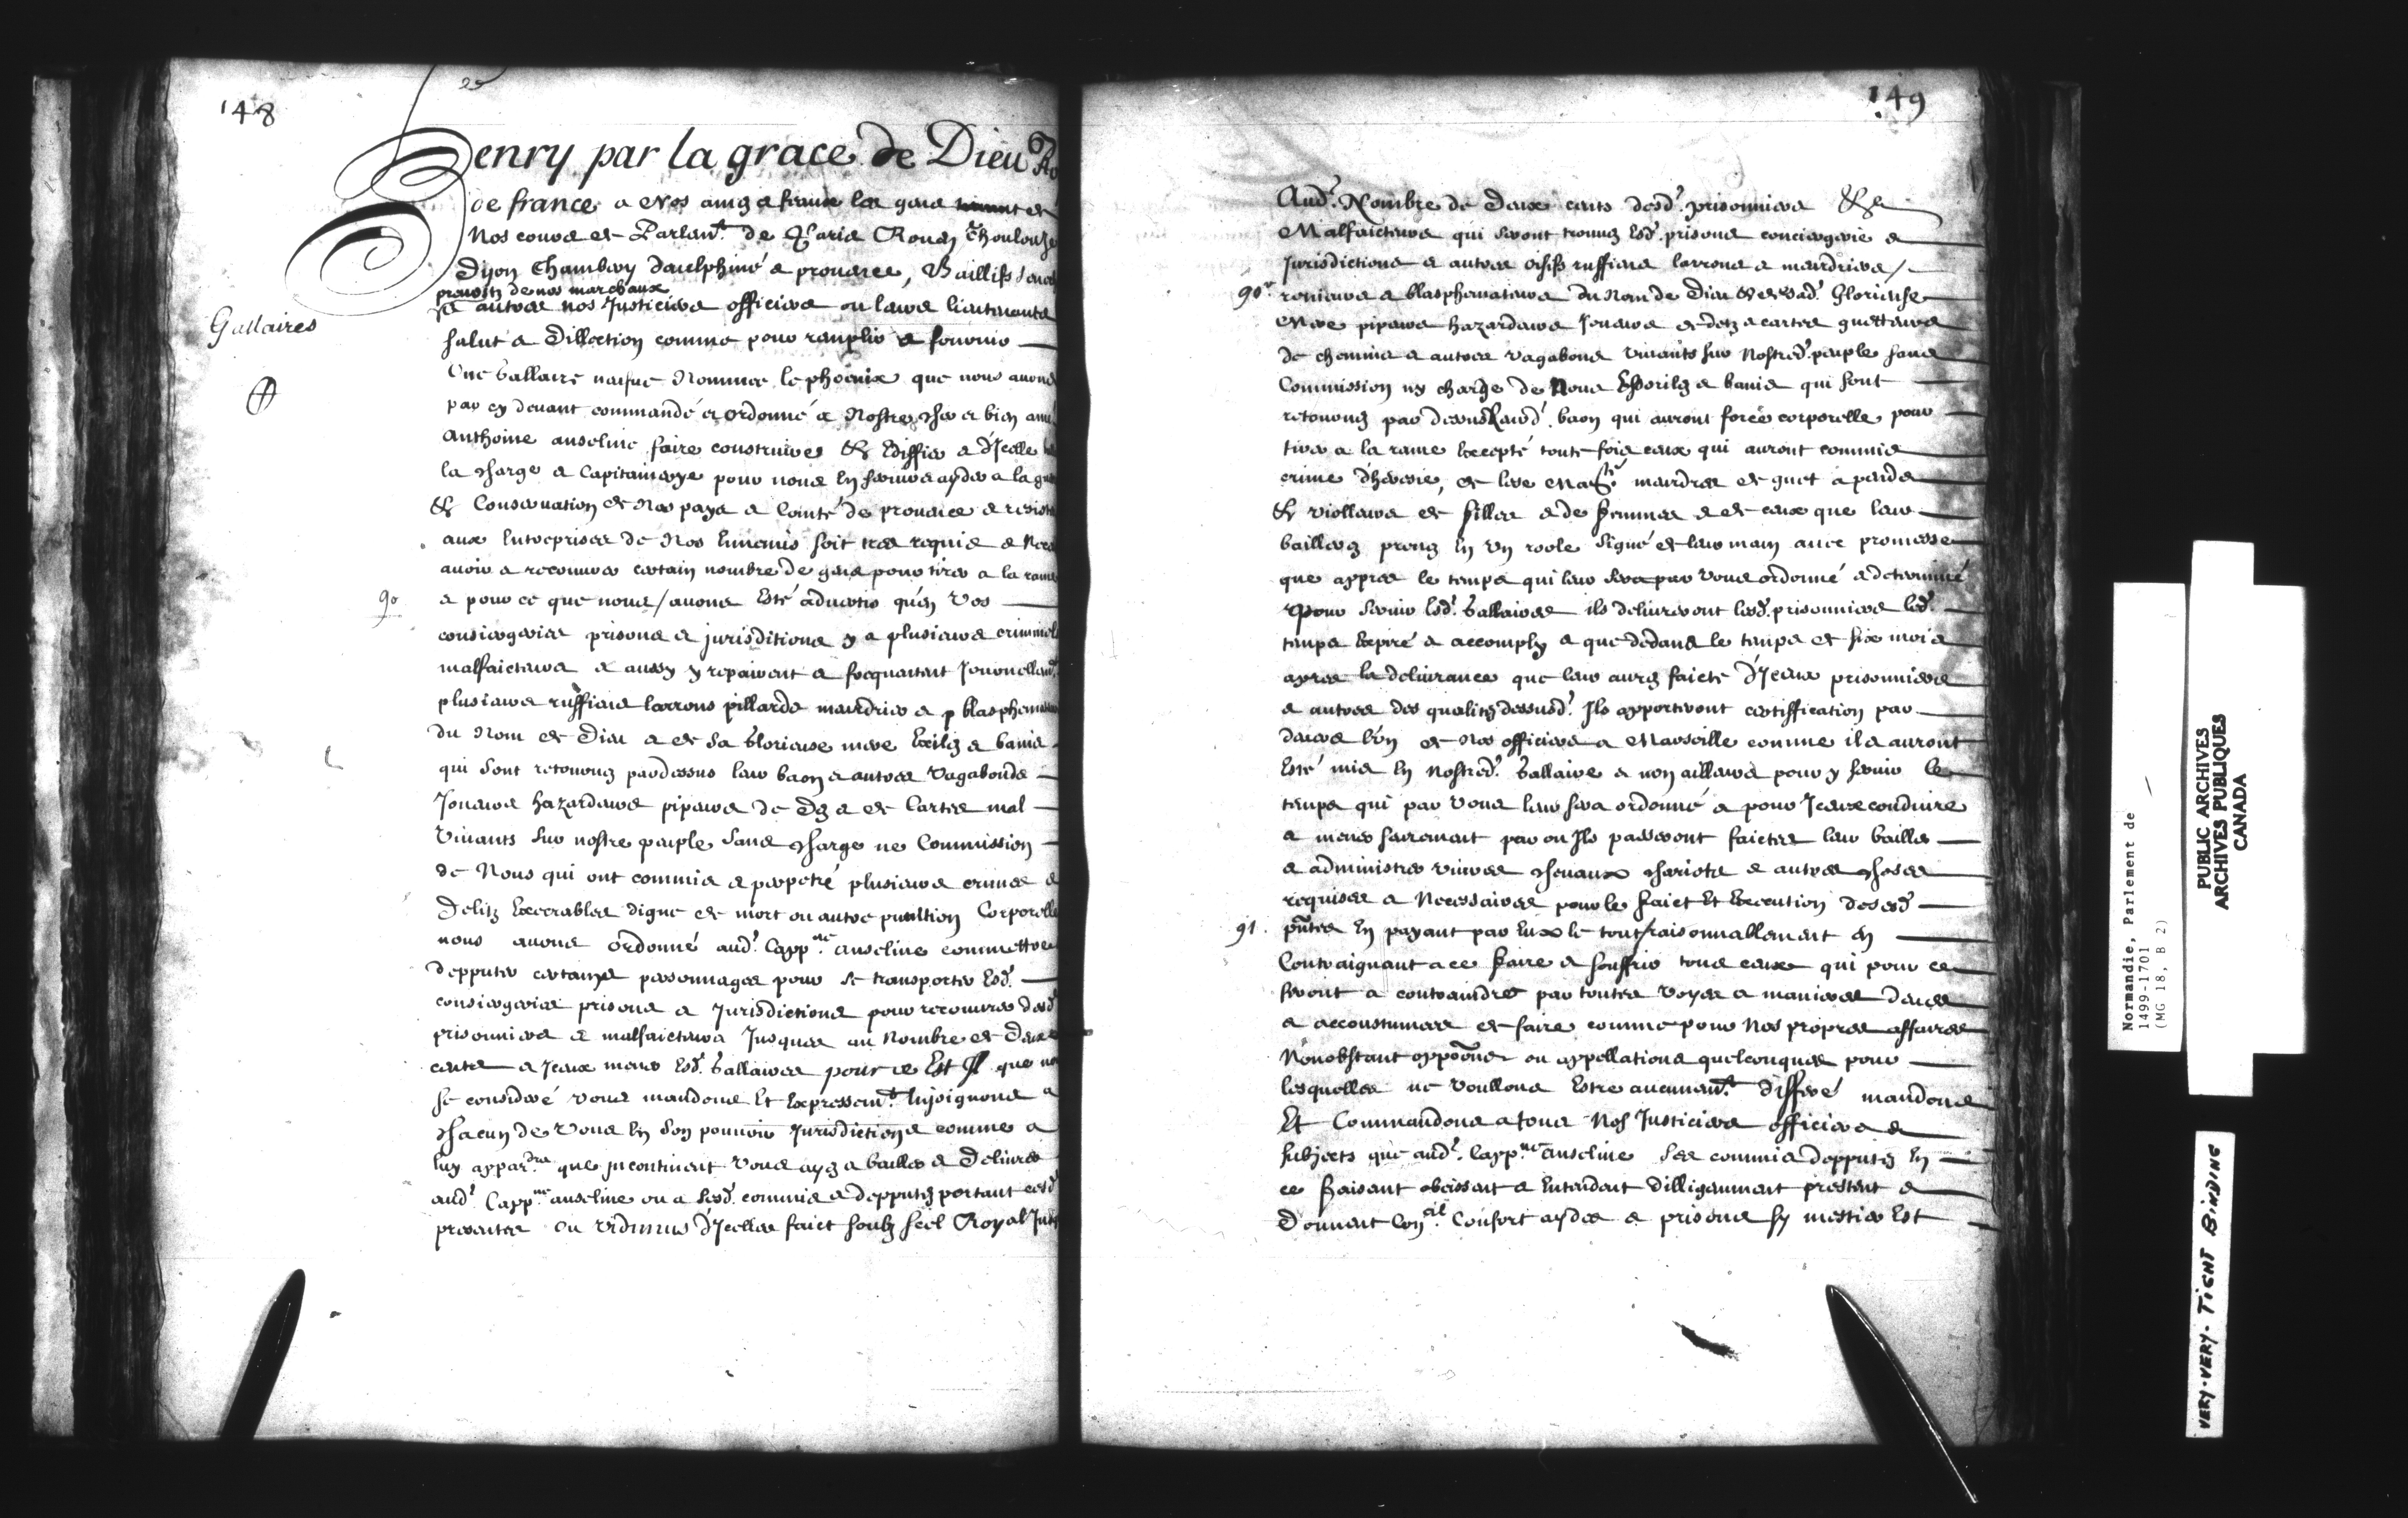 148
Henry par la grace de Dieu Ro
de france a Nos amez & feaulx les gens tenant de
Nos cours de Parlem.t de Paris Rouen Tholouze
Dijon Chambery daulphiné & provence, Baillifs senes
prevostz de nos marechaux
& autres nos Justiciers officiers ou leurs lieutenants
Gallaires
salut & dillection comme pour remplir & fournir
Une gallaire neufve Nommee le phoenix que nous avons
par cy devant commandé & ordonné a Nostre cher & bien amé
Anthoine anseline faire construire & Ediffier & d'Jcelle
la charge & Capitainerye pour nous En servir & ayder a la
& Conservation de Nos pays & Comté de provence & resister
aux Entreprises de Nos Ennemis soit tres requis & Nece
avoir & recouvrer certain nombre de gens pour tirer a la rame
90
& pour ce que nous / avons Esté advertis qu'en Vos
consiergeries prisons & jurisditions y a plusieurs criminels
malfaicteurs & aussy y repairent & frequentent Journellem.t
plusieurs ruffiens larrons pillards meurdriers & blasphemateurs
du Nom de Dieu & de sa Glorieuse mere Exilez & banis
qui sont retournez pardessus leur baon & autres Vagabonds
Joueurs hazardeurs pipeurs de Dez & de Cartes mal
Vivants sur nostre peuple sans charge ne Commission
de Nous qui ont commis & perpetré plusieurs crimes &
Delitz Execrables digne de mort ou autre punition Corporelle
nous avons ordonné aud.t Capp.ne anseline commettre
depputer certains personnages pour se transporter Esd.
consiergeries prisons & Jurisdictions pour recouvrer desd.
prisonniers & malfaicteurs Jusques au Nombre de Deux
cents & Jceux mener Esd. Gallaires pour ce Est Jl que no
ce consideré vous mandons Et Expressem.t Enjoignons a
chacun de Vous En son pouvoir Jurisdictions comme a
luy appar.dra que Jncontinent Vous ayez a bailler & Delivrer
aud.t Capp.ne anseline ou a sesd. commis & depputez portant cesd.
presentes ou vidimus d'Jcelles faict soubz scel Royal Jus
149
Aud.t Nombre de Deux cents desd.t prisonniers &
Malfaicteurs qui seront trouvez Esd. prisons conciergerie &
Jurisdictions & autres oisifs ruffiens larrons & meurdriers /
90.v
renieurs & blasphemateurs du Nom de Dieu & de sad. Glorieuse
Mere pipeurs hazardeurs Joueurs de detz & cartes guetteurs
de chemins & autres vagabons vivants sur Nostred. peuple sans
Commission ny charge de Nous Essorilez & banis qui sont
retournez par dessus leurd. baon qui auront force corporelle pour
tirer a la rame Excepté toute fois ceux qui auront commis
crime d'heresie, de leze Ma.té meurdres de guet a pends
& viollers de filles & de femmes & de ceux que leur
baillerez prenez En Un roole signé de leur main avec promesse
que appres le temps qui leur sera par Vous ordonné & determiné
Pour servir Esd. Gallaires ils delivreront lesd. prisonniers led.
temps Expiré & accomply & que dedans le temps de six mois
apres la delivrance que leur aurez faicte d'Jceux prisonniers
& autres des qualitez dessusd. Ils apporteront certiffication par
devers l'un de Nos officiers a Marseille comme ils auront
Esté mis En Nostred. Gallaire & non ailleurs pour y servir le
temps qui par Vous leur sera ordonné & pour Jceux conduire
& mener seurement par ou Jls passeront faictes leur bailler
& administrer vivres chevaux chariots & autres choses
requises & Necessaires pour le faict Et Execution desesd.
91.
pñtes En payant par Eux le tout / raisonnablement en
Contraignant a ce faire & souffrir tous ceux qui pour ce
seront a contraindre par toutes Voyes & manieres deues
& accoustumees de faire comme pour Nos propres affaires
Nonobstant oppoons ou appellations quelconques pour
lesquelles ne voullons Estre aucunem.t differé mandons
Et Commandons a tous Nos Justiciers officiers &
subjects que aud.t Capp.ne anseline ses commis depputez En
ce faisant obeissent & Entendent dilligemment prestent &
Donnent Con.cil Confort aydes & prisons sy mestier Est
Normandie, Parlement de
1499-1701
(MG 18, B 2)
PUBLIC ARCHIVES
ARCHIVES PUBLIQUES
CANADA
VERY-VERY- TIGHT BINDING